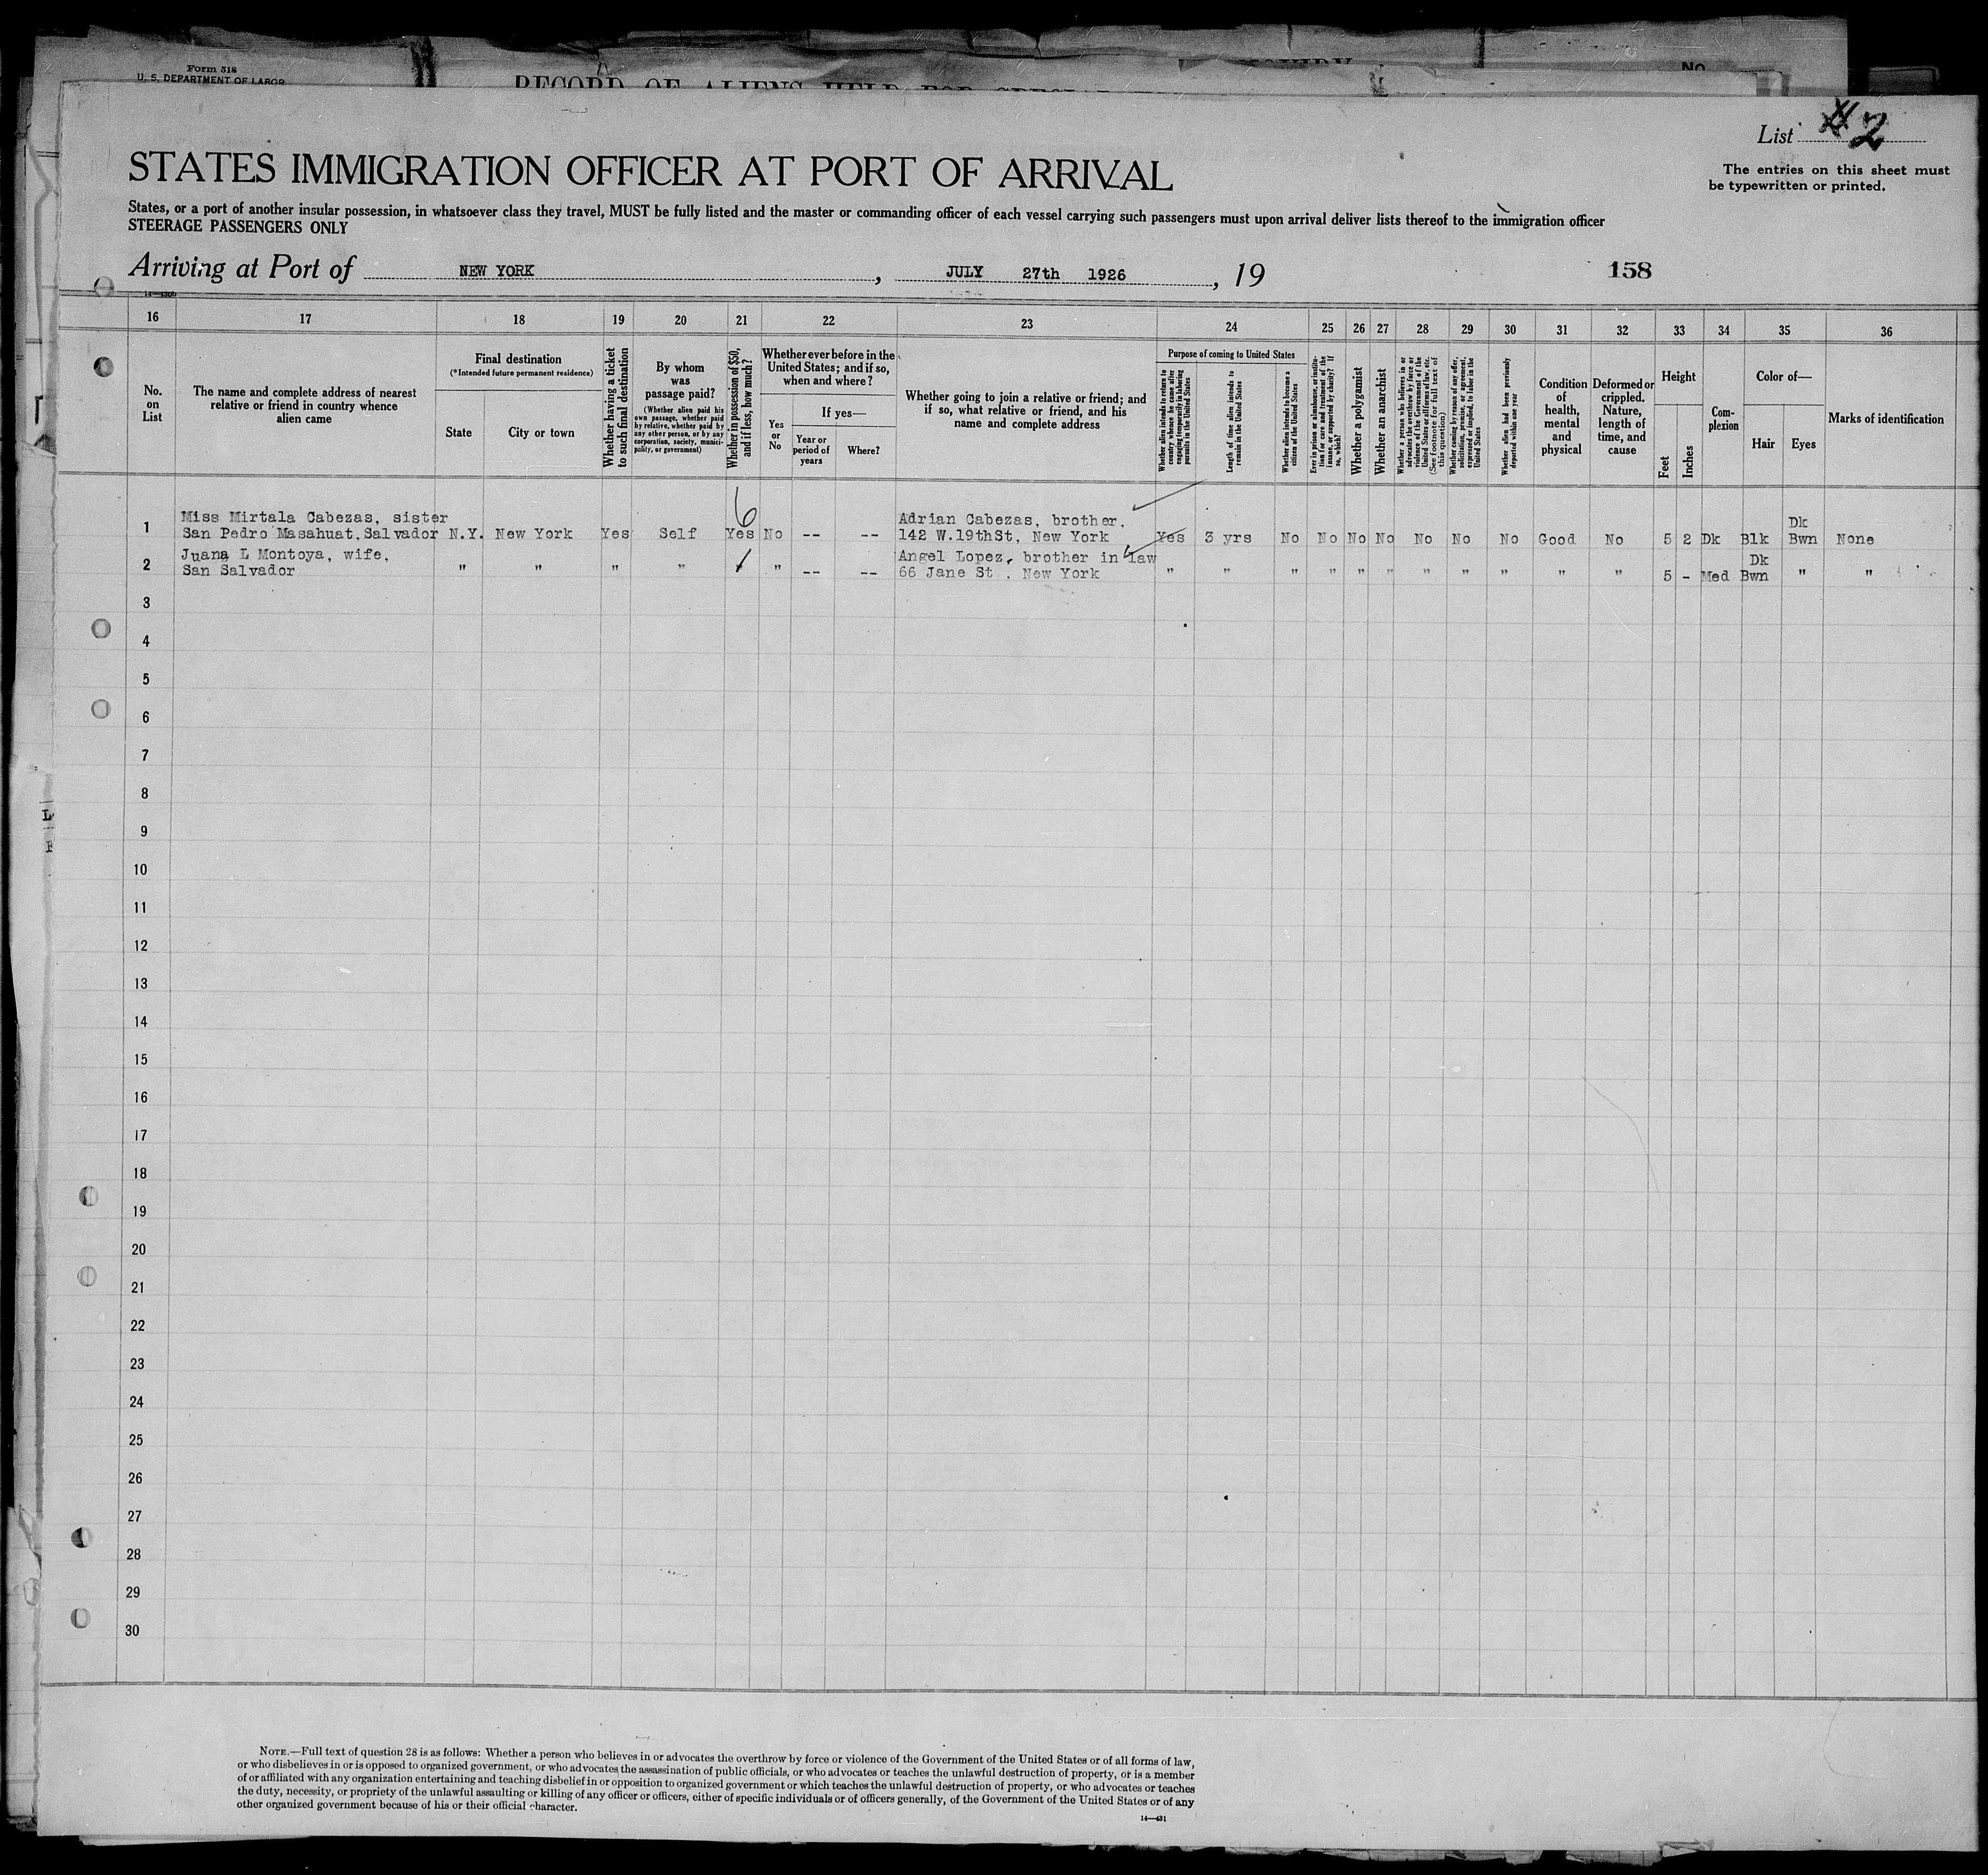 Form 518
U. S. DEPARTMENT OF LABOR
RECORD OF ALIENS HELD FOR SPECIAL
No
List #2
The entries on this sheet must
be typewritten or printed.
STATES IMMIGRATION OFFICER AT PORT OF ARRIVAL
States, or a port of another insular possession, in whatsoever class they travel, MUST be fully listed and the master or commanding officer of each vessel carrying such passengers must upon arrival deliver lists thereof to the immigration officer
STEERAGE PASSENGERS ONLY
Arriving at Port of NEW YORK, JULY 27th 1926, 19
158
16 17 18 19 20 21 22 23 24 25 26 27 28 29 30 31 32 33 34 35 36
No.
on
List
The name and complete address of nearest
relative or friend in country whence
alien came
Final destination
(*Intended future permanent residence)
State
City or town
Whether having a ticket
to such final destination
By whom
was
passage paid?
(Whether alien paid his
own passage, whether paid
by relative, whether paid by
any other person, or by any
corporation, society, munici-
pality, or government)
Whether in possession of $50,
and if less, how much?
Whether ever before in the
United States; and if so,
when and where?
Yes
or
No
If yes—
Year or
period of
years
Where?
Whether going to join a relative or friend; and
if so, what relative or friend, and his
name and complete address
Purpose of coming to United States
Whether alien intends to return to
country whence he came after
engaging temporarily in laboring
pursuits in the United States
Length of time alien intends to
remain in the United States
Whether alien intends to become a
citizen of the United States
Ever in prison or almshouse, or institu-
tion for care and treatment of the
insane, or supported by charity? If
so, which?
Whether a polygamist
Whether an anarchist
Whether a person who believes in or
advocates the overthrow by force or
violence of the Government of the
United States or all forms of law, etc.
(See footnote for full text of
this question)
Whether coming by reason of any offer,
solicitation, promise, or agreement,
expressed or implied, to labor in the
United States
Whether alien had been previously
deported within one year
Condition
of
health,
mental
and
physical
Deformed or
crippled.
Nature,
length of
time, and
cause
Height
Feet
Inches
Com-
plexion
Color of—
Hair
Eyes
Marks of identification
6
Miss Mirtala Cabezas, sister Adrian Cabezas, brother, Dk
1 San Pedro Masahuat, Salvador N.Y. New York Yes Self Yes No -- -- 142 W.19thSt. New York Yes 3 yrs No No No No No No No Good No 5 2 Dk Blk Bwn None
Juana L Montoya, wife, Angel Lopez, brother in law Dk
2 San Salvador " " " " " -- -- 66 Jane St. New York " " " " " " " " " " " 5 - Med Bwn " "
3
4
5
6
7
8
9
10
11
12
13
14
15
16
17
18
19
20
21
22
23
24
25
26
27
28
29
30
NOTE.—Full text of question 28 is as follows: Whether a person who believes in or advocates the overthrow by force or violence of the Government of the United States or of all forms of law,
or who disbelieves in or is opposed to organized government, or who advocates the assassination of public officials, or who advocates or teaches the unlawful destruction of property, or is a member
of or affiliated with any organization entertaining and teaching disbelief in or opposition to organized government or which teaches the unlawful destruction of property, or who advocates or teaches
the duty, necessity, or propriety of the unlawful assaulting or killing of any officer or officers, either of specific individuals or of officers generally, of the Government of the United States or of any
other organized government because of his or their official character.
14—431